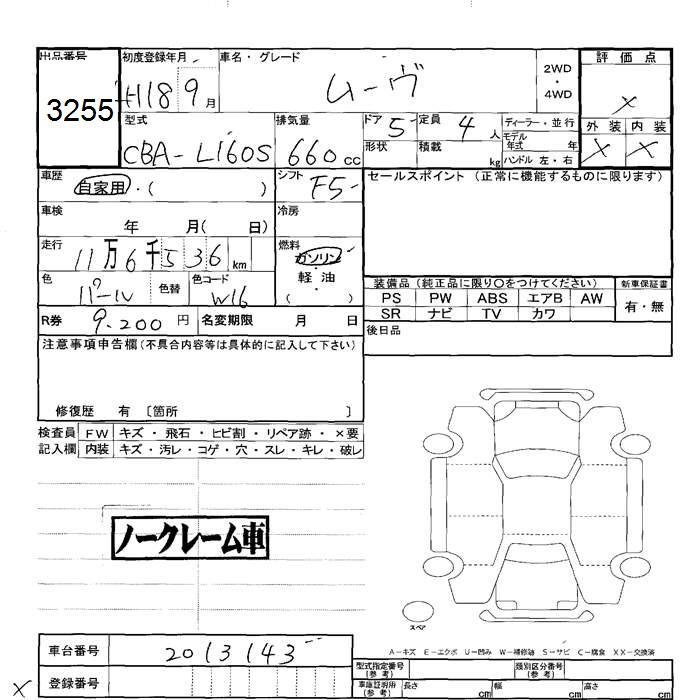 出品番号 初度登録年月 車名・グレード 2WD・4WD 評価点
3255 H18 9月 ムーヴ ×
型式 排気量 ドア 5 定員 4人 ディーラー・並行 外装 内装
CBA-L160S 660cc 形状 積載 kg モデル年式 年 × ×
ハンドル 左・右
車歴 自家用・( ) シフト F5 セールスポイント (正常に機能するものに限ります)
車検 年 月( 日) 冷房
走行 11万6千536km 燃料 ガソリン・軽油 ( )
色 パール 色替 色コード W16 装備品 (純正品に限り○をつけてください) 新車保証書
PS PW ABS エアB AW 有・無
R券 9,200円 名変期限 月 日 SR ナビ TV カワ
注意事項申告欄(不具合内容等は具体的に記入して下さい) 後日品
修復歴 有 〔箇所 〕
検査員 FW キズ・飛石・ヒビ割・リペア跡・×要
記入欄 内装 キズ・汚レ・コゲ・穴・スレ・キレ・破レ
ノークレーム車
スペア
A-キズ E-エクボ U-凹み W-補修跡 S-サビ C-腐食 XX-交換済
車台番号 2013143
型式指定番号(参考) 類別区分番号(参考)
× 登録番号 車庫証明用(参考) 長さ cm 幅 cm 高さ cm